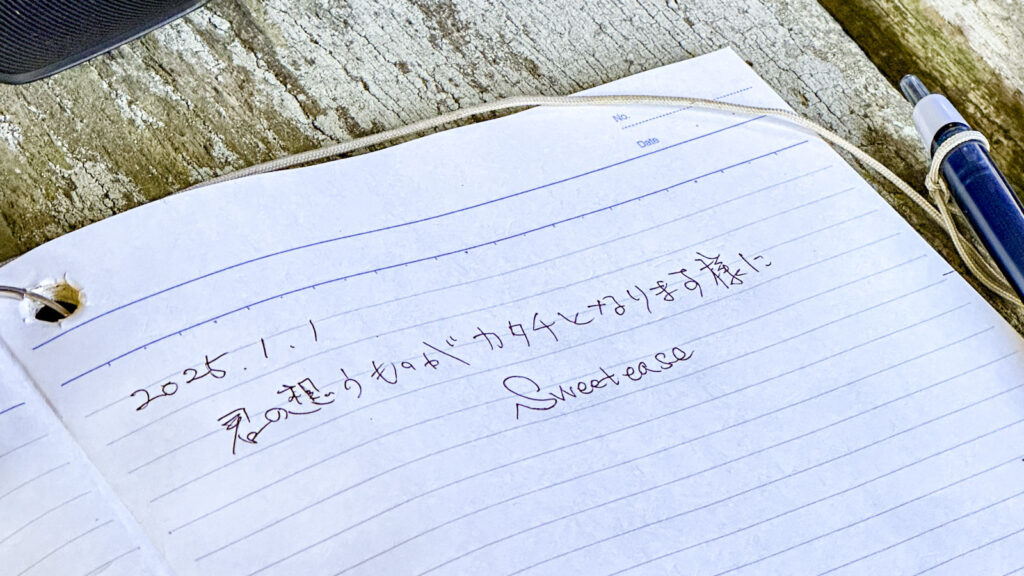 No.
Date
2025.1.1
君の想うものがカタチとなります様に
Sweetease